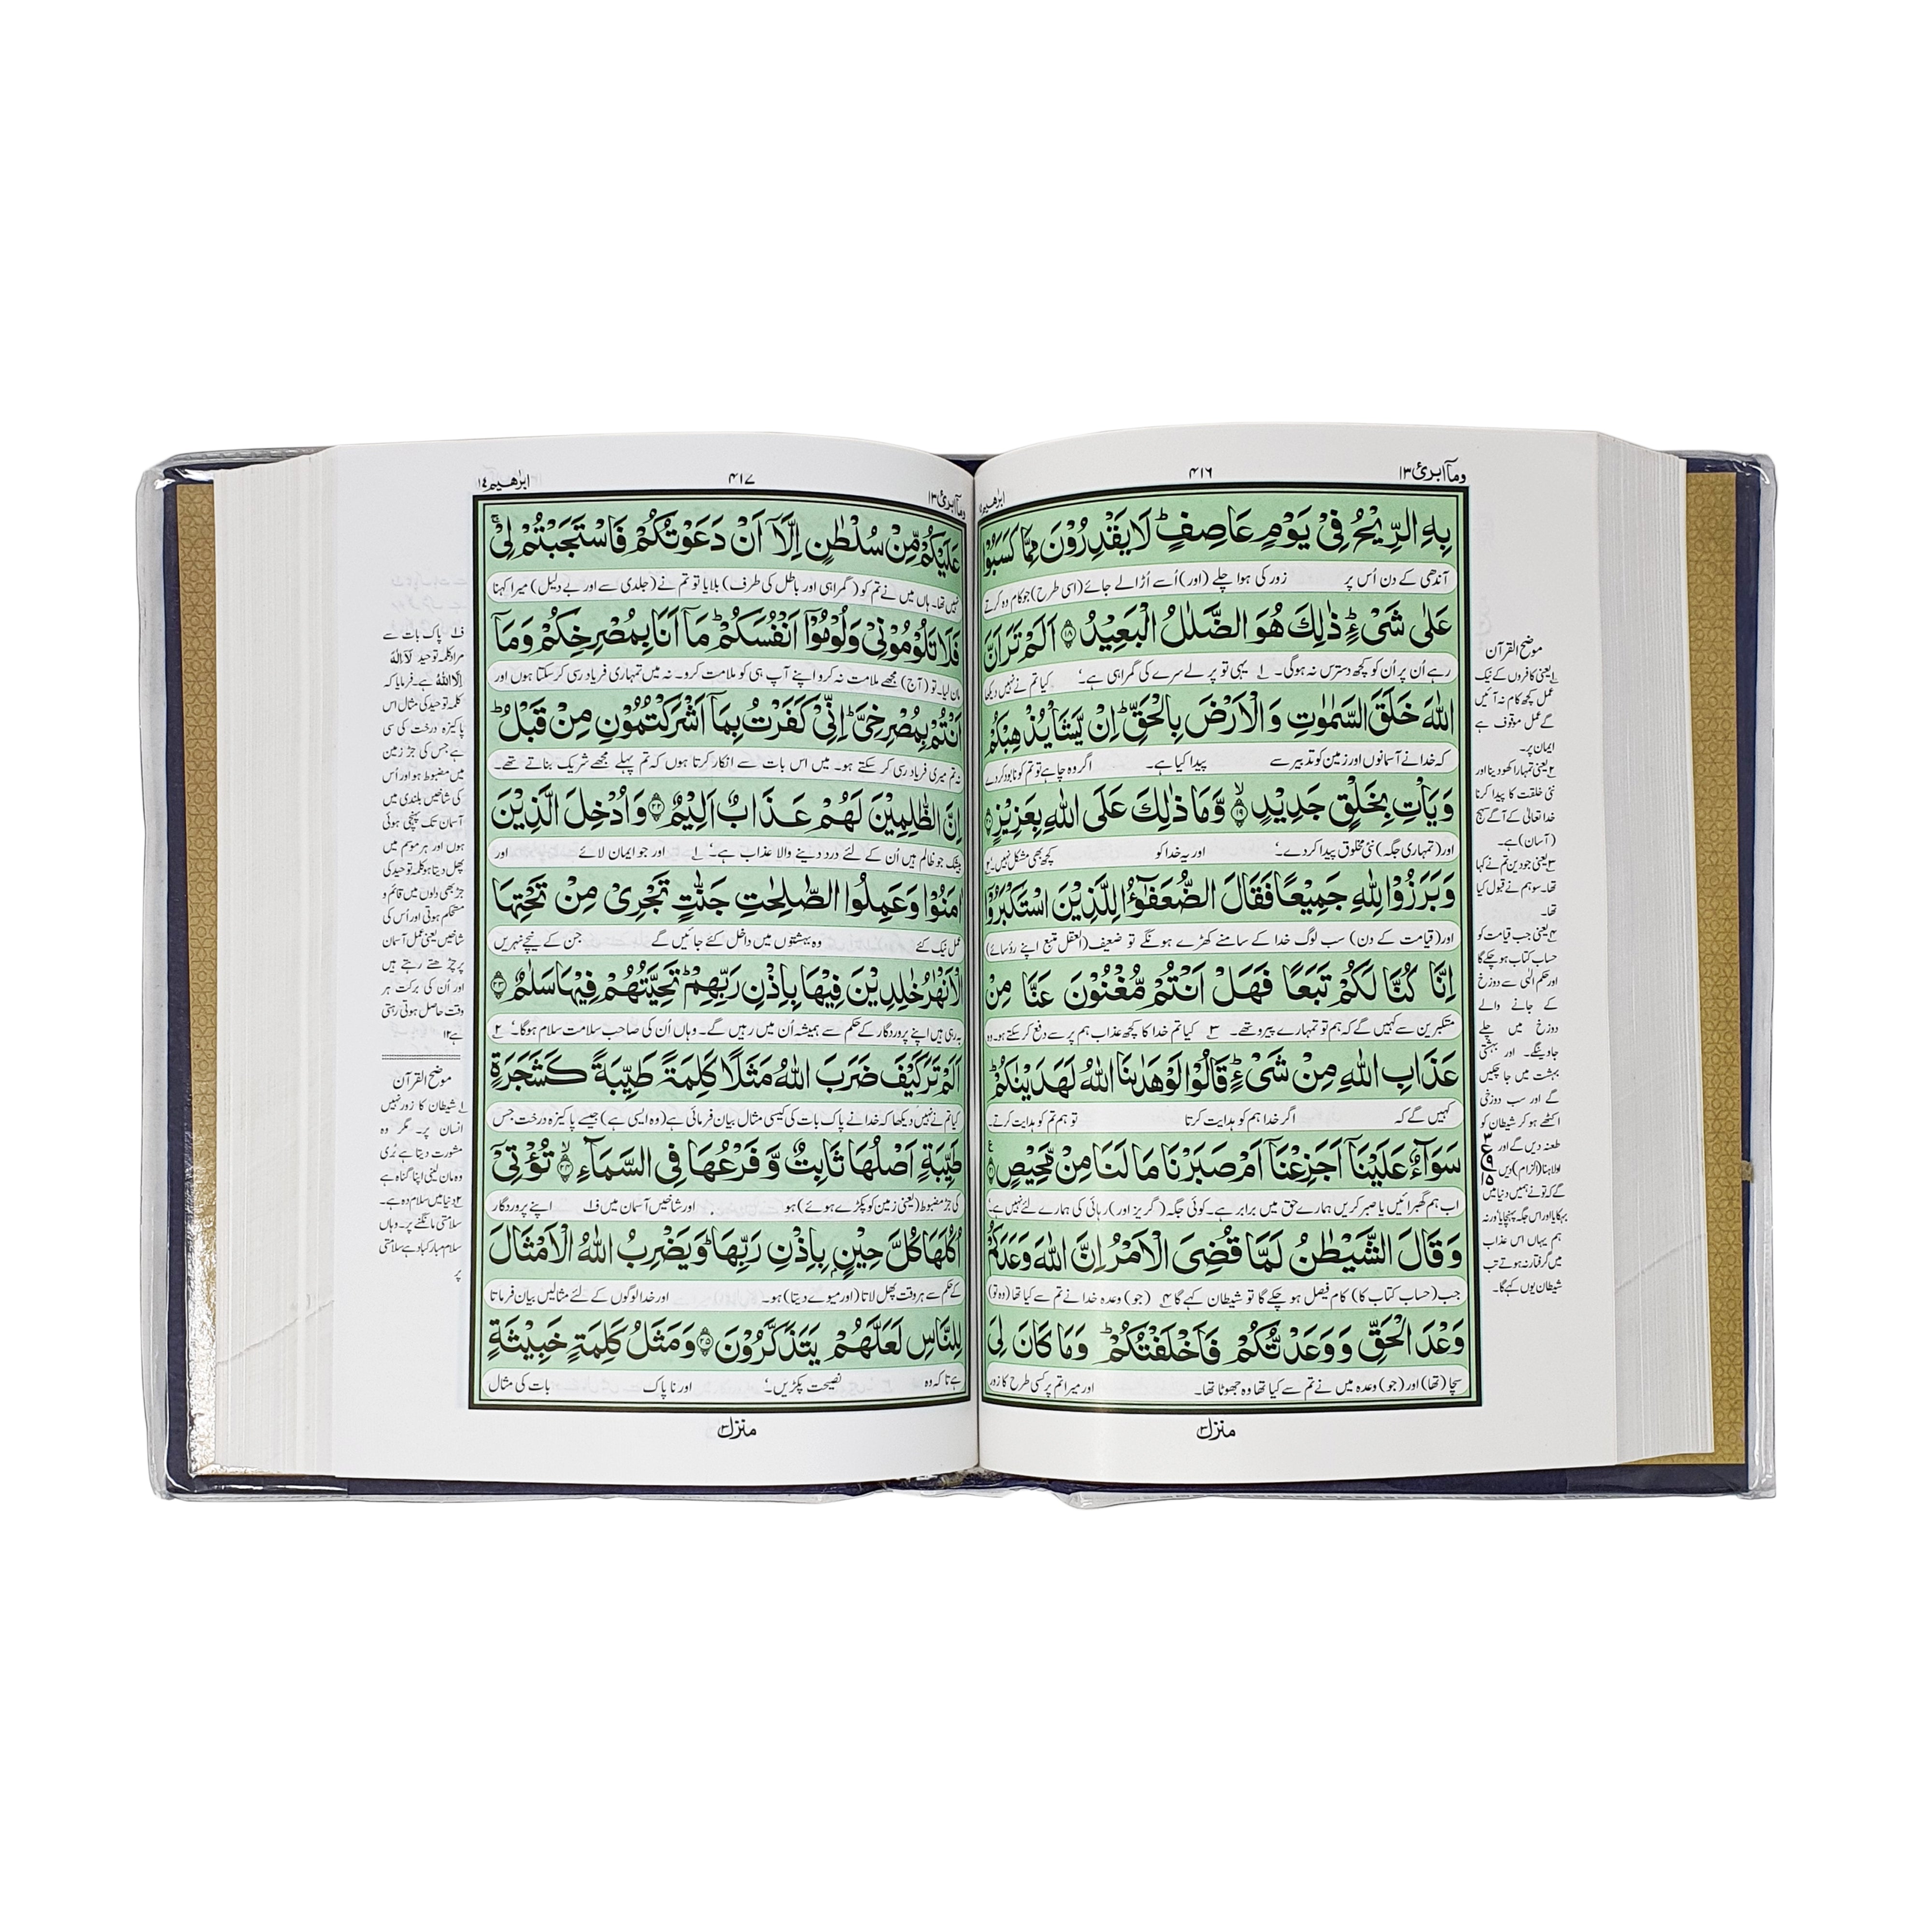 ومآ ابرئ ۱۳
۴۱۶
ابرٰهیم
بِهِ الرِّيْحُ فِيْ يَوْمٍ عَاصِفٍ ؕ لَا يَقْدِرُوْنَ مِمَّا كَسَبُوْا
آندھی کے دن اُس پر زور کی ہوا چلے (اور) اُسے اڑا لے جائے (اسی طرح) جو کام وہ کرتے
عَلٰى شَيْءٍ ؕ ذٰلِكَ هُوَ الضَّلٰلُ الْبَعِيْدُ ۱۸ اَلَمْ تَرَ اَنَّ
رہے اُن پر اُن کو کچھ دسترس نہ ہوگی۔ ۱ یہی تو پرلے سرے کی گمراہی ہے۔ کیا تم نے نہیں دیکھا
اللّٰهَ خَلَقَ السَّمٰوٰتِ وَ الْاَرْضَ بِالْحَقِّ ؕ اِنْ يَّشَاْ يُذْهِبْكُمْ
کہ خدا نے آسمانوں اور زمین کو تدبیر سے پیدا کیا ہے۔ اگر وہ چاہے تو تم کو نابود کر دے
وَ يَاْتِ بِخَلْقٍ جَدِيْدٍ ۱۹ وَّ مَا ذٰلِكَ عَلَى اللّٰهِ بِعَزِيْزٍ ۲۰
اور (تمہاری جگہ) نئی مخلوق پیدا کر دے۔ اور یہ خدا کو کچھ بھی مشکل نہیں۔ ۲
وَ بَرَزُوْا لِلّٰهِ جَمِيْعًا فَقَالَ الضُّعَفٰٓؤُا لِلَّذِيْنَ اسْتَكْبَرُوْۤا
اور (قیامت کے دن) سب لوگ خدا کے سامنے کھڑے ہونگے تو ضعیف (العقل متبع اپنے رؤسائے)
اِنَّا كُنَّا لَكُمْ تَبَعًا فَهَلْ اَنْتُمْ مُّغْنُوْنَ عَنَّا مِنْ
متکبرین سے کہیں گے کہ ہم تو تمہارے پیرو تھے۔ ۳ کیا تم خدا کا کچھ عذاب ہم پر سے دفع کر سکتے ہو۔ وہ
عَذَابِ اللّٰهِ مِنْ شَيْءٍ ؕ قَالُوْا لَوْ هَدٰىنَا اللّٰهُ لَهَدَيْنٰكُمْ ؕ
کہیں گے کہ اگر خدا ہم کو ہدایت کرتا تو ہم تم کو ہدایت کرتے۔
سَوَآءٌ عَلَيْنَاۤ اَجَزِعْنَاۤ اَمْ صَبَرْنَا مَا لَنَا مِنْ مَّحِيْصٍ ۲۱
اب ہم گھبرائیں یا صبر کریں ہمارے حق میں برابر ہے۔ کوئی جگہ (گریز اور) رہائی کی ہمارے لئے نہیں ہے۔
وَ قَالَ الشَّيْطٰنُ لَمَّا قُضِيَ الْاَمْرُ اِنَّ اللّٰهَ وَعَدَكُمْ
جب (حساب کتاب کا) کام فیصل ہو چکے گا تو شیطان کہے گا ۴ (جو) وعدہ خدا نے تم سے کیا تھا (وہ تو)
وَعْدَ الْحَقِّ وَ وَعَدْتُّكُمْ فَاَخْلَفْتُكُمْ ؕ وَ مَا كَانَ لِيَ
سچا (تھا) اور (جو) وعدہ میں نے تم سے کیا تھا وہ جھوٹا تھا۔ اور میرا تم پر کسی طرح کا زور
منزل ۳
موضح القرآن
۱ یعنی کافروں کے نیک
عمل کچھ کام نہ آئیں
گے عمل موقوف ہے
ایمان پر۔
۲ یعنی تمہارا کھو دینا اور
نئی خلقت کا پیدا کرنا
خدا تعالیٰ کے آگے سہج
(آسان) ہے۔
۳ یعنی جو دین تم نے کہا
تھا۔ سو ہم نے قبول کیا
تھا۔
۴ یعنی جب قیامت کو
حساب کتاب ہو چکے گا
اور حکم الٰہی سے دوزخ
کے جانے والے
دوزخ میں چلے
جاوینگے۔ اور بہشتی
بہشت میں جا چکیں
گے اور سب دوزخی
اکٹھے ہو کر شیطان کو
طعنہ دیں گے اور
اولاہنا (الزام) دیں
گے کہ تو نے ہمیں دنیا میں
بہکایا اور اس جگہ پہنچایا ورنہ
ہم یہاں اس عذاب
میں گرفتار نہ ہوتے تب
شیطان یوں کہے گا۔
ومآ ابرئ ۱۳
۴۱۷
ابرٰهیم ۱۴
عَلَيْكُمْ مِّنْ سُلْطٰنٍ اِلَّاۤ اَنْ دَعَوْتُكُمْ فَاسْتَجَبْتُمْ لِيْ ۚ
نہیں تھا۔ ہاں میں نے تم کو (گمراہی اور باطل کی طرف) بلایا تو تم نے (جلدی سے اور بے دلیل) میرا کہنا
فَلَا تَلُوْمُوْنِيْ وَ لُوْمُوْۤا اَنْفُسَكُمْ ؕ مَاۤ اَنَا بِمُصْرِخِكُمْ وَ مَاۤ
مان لیا۔ تو (آج) مجھے ملامت نہ کرو اپنے آپ ہی کو ملامت کرو۔ نہ میں تمہاری فریاد رسی کر سکتا ہوں اور
اَنْتُمْ بِمُصْرِخِيَّ ؕ اِنِّيْ كَفَرْتُ بِمَاۤ اَشْرَكْتُمُوْنِ مِنْ قَبْلُ ؕ
نہ تم میری فریاد رسی کر سکتے ہو۔ میں اس بات سے انکار کرتا ہوں کہ تم پہلے مجھے شریک بناتے تھے۔
اِنَّ الظّٰلِمِيْنَ لَهُمْ عَذَابٌ اَلِيْمٌ ۲۲ وَ اُدْخِلَ الَّذِيْنَ
بیشک جو ظالم ہیں اُن کے لئے درد دینے والا عذاب ہے۔ ۱ اور جو ایمان لائے اور
اٰمَنُوْا وَ عَمِلُوا الصّٰلِحٰتِ جَنّٰتٍ تَجْرِيْ مِنْ تَحْتِهَا
عمل نیک کئے وہ بہشتوں میں داخل کئے جائیں گے جن کے نیچے نہریں
الْاَنْهٰرُ خٰلِدِيْنَ فِيْهَا بِاِذْنِ رَبِّهِمْ ؕ تَحِيَّتُهُمْ فِيْهَا سَلٰمٌ ۲۳
بہ رہی ہیں اپنے پروردگار کے حکم سے ہمیشہ اُن میں رہیں گے۔ وہاں اُن کی صاحب سلامت سلام ہوگا۔ ۲
اَلَمْ تَرَ كَيْفَ ضَرَبَ اللّٰهُ مَثَلًا كَلِمَةً طَيِّبَةً كَشَجَرَةٍ
کیا تم نے نہیں دیکھا کہ خدا نے پاک بات کی کیسی مثال بیان فرمائی ہے (وہ ایسی ہے) جیسے پاکیزہ درخت جس
طَيِّبَةٍ اَصْلُهَا ثَابِتٌ وَّ فَرْعُهَا فِي السَّمَآءِ ۲۴ تُؤْتِيْۤ
کی جڑ مضبوط (یعنی زمین کو پکڑے ہوئے) ہو اور شاخیں آسمان میں ف۱ اپنے پروردگار
اُكُلَهَا كُلَّ حِيْنٍۭ بِاِذْنِ رَبِّهَا ؕ وَ يَضْرِبُ اللّٰهُ الْاَمْثَالَ
کے حکم سے ہر وقت پھل لاتا (اور میوے دیتا) ہو۔ اور خدا لوگوں کے لئے مثالیں بیان فرماتا
لِلنَّاسِ لَعَلَّهُمْ يَتَذَكَّرُوْنَ ۲۵ وَ مَثَلُ كَلِمَةٍ خَبِيْثَةٍ
ہے تا کہ وہ نصیحت پکڑیں۔ اور ناپاک بات کی مثال
منزل ۳
ف۱ پاک بات سے
مراد کلمہ توحید لَآ اِلٰهَ
اِلَّا اللّٰهُ ہے۔ فرمایا کہ
کلمہ توحید کی مثال اس
پاکیزہ درخت کی سی
ہے جس کی جڑ زمین
میں مضبوط ہو اور اُس
کی شاخیں بلندی میں
آسمان تک پہنچی ہوئی
ہوں اور ہر موسم میں
پھل دیتا ہو کلمہ توحید کی
جڑ بھی دلوں میں قائم و
مستحکم ہوتی اور اُس کی
شاخیں یعنی عمل آسمان
پر چڑھتے رہتے ہیں
اور اُن کی برکت ہر
وقت حاصل ہوتی رہتی
ہے ۱۲
موضح القرآن
۱ شیطان کا زور نہیں
انسان پر۔ مگر وہ
مشورت دیتا ہے بُری
وہ مان لینی اپنا گناہ ہے
۲ دنیا میں سلام دعا ہے۔
سلامتی مانگنے پر۔ وہاں
سلام مبارکباد ہے سلامتی
پر